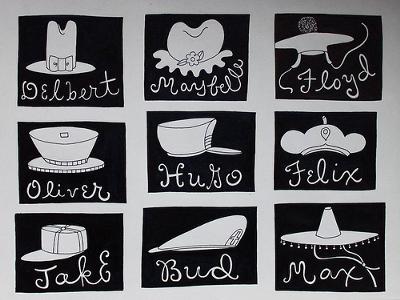 Delbert
Maybelle
Floyd
Oliver
Hugo
Felix
Jake
Bud
Max